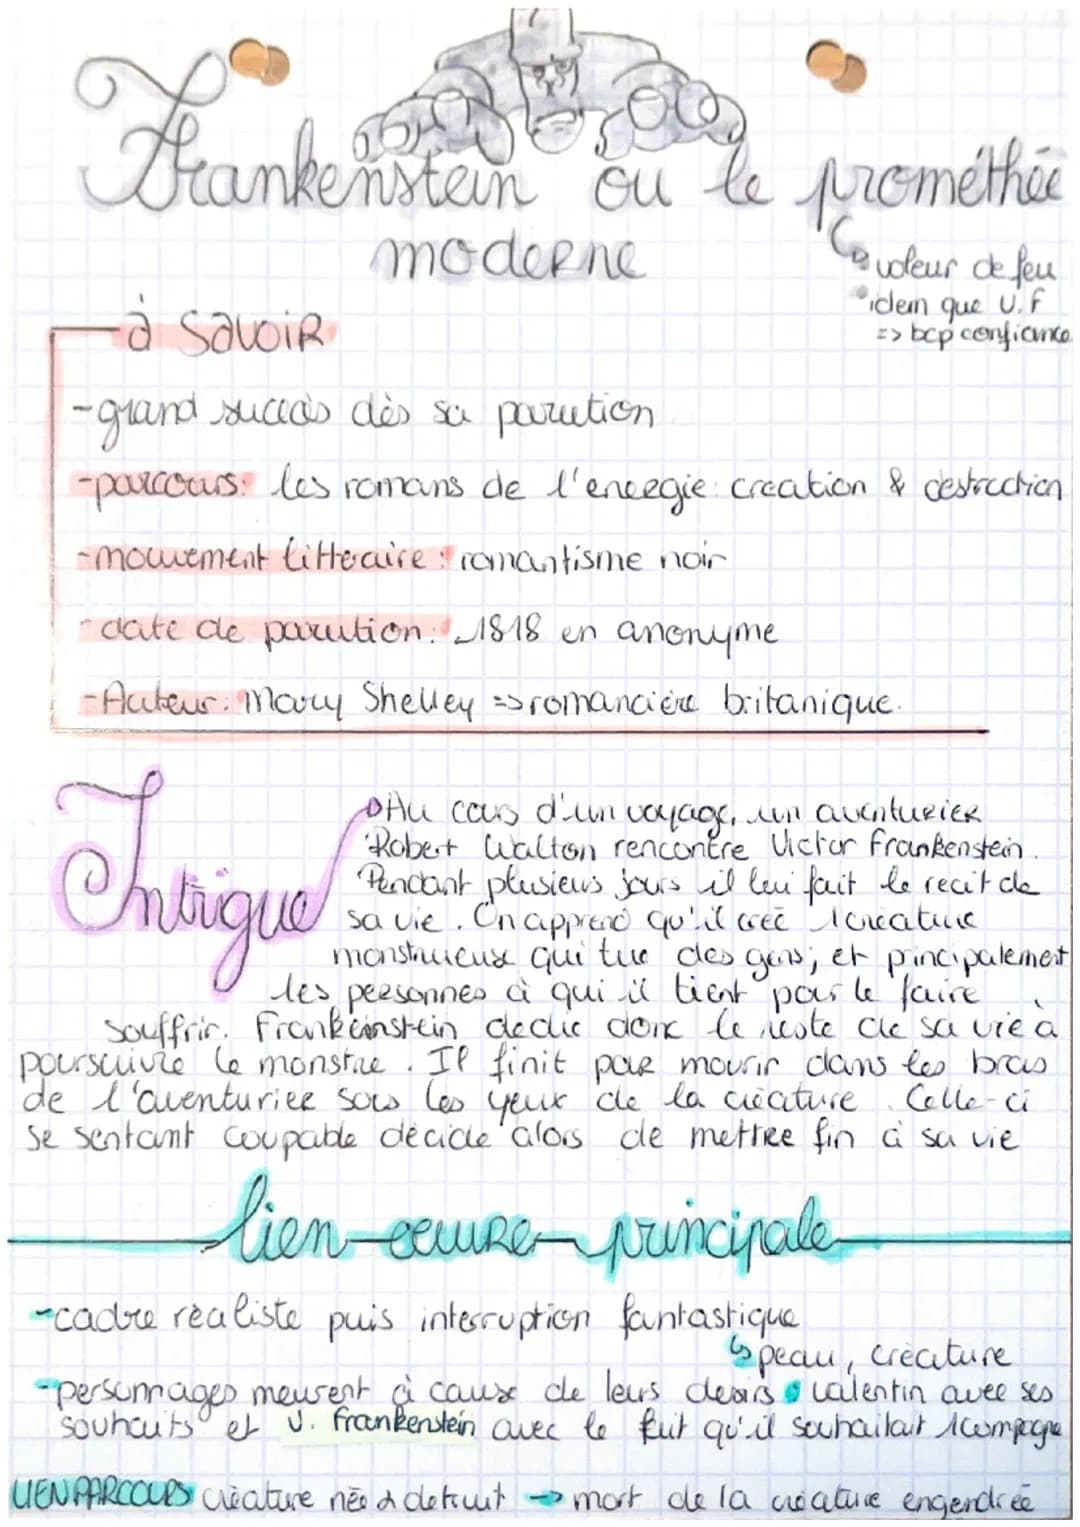 Frankenstein ou le prométhée
moderne
voleur de feu
idem que V.F
=> bcp confiance
à savoir
-grand succès dès sa parution
-parcours: les romans de l'energie: creation & destruction
-mouvement littéraire: romantisme noir
-date de parution: 1818 en anonyme
-Auteur: Mary Shelley => romancière britanique.
Intrigue
Au cours d'un voyage, un aventurier
Robert Walton rencontre Victor Frankenstein.
Pendant plusieurs jours il lui fait le recit de
sa vie. On apprend qu'il creé 1 creature
monstrueuse qui tue des gens, et principalement
les personnes à qui il tient pour le faire
souffrir. Frankeinstein dedie donc le reste de sa vie à
poursuivre le monstre. Il finit par mourir dans les bras
de l'aventurier sous les yeux de la créature. Celle-ci
se sentant coupable décide alors de mettre fin à sa vie
lien oeuvre principale
-cadre réaliste puis interruption fantastique
↳ peau, créature
-personnages meurent à cause de leurs desirs valentin avec ses
souhaits et V. Frankenstein avec le fait qu'il souhaitait 1 compagne
LIEN PARCOURS créature née & detruit → mort de la créature engendrée